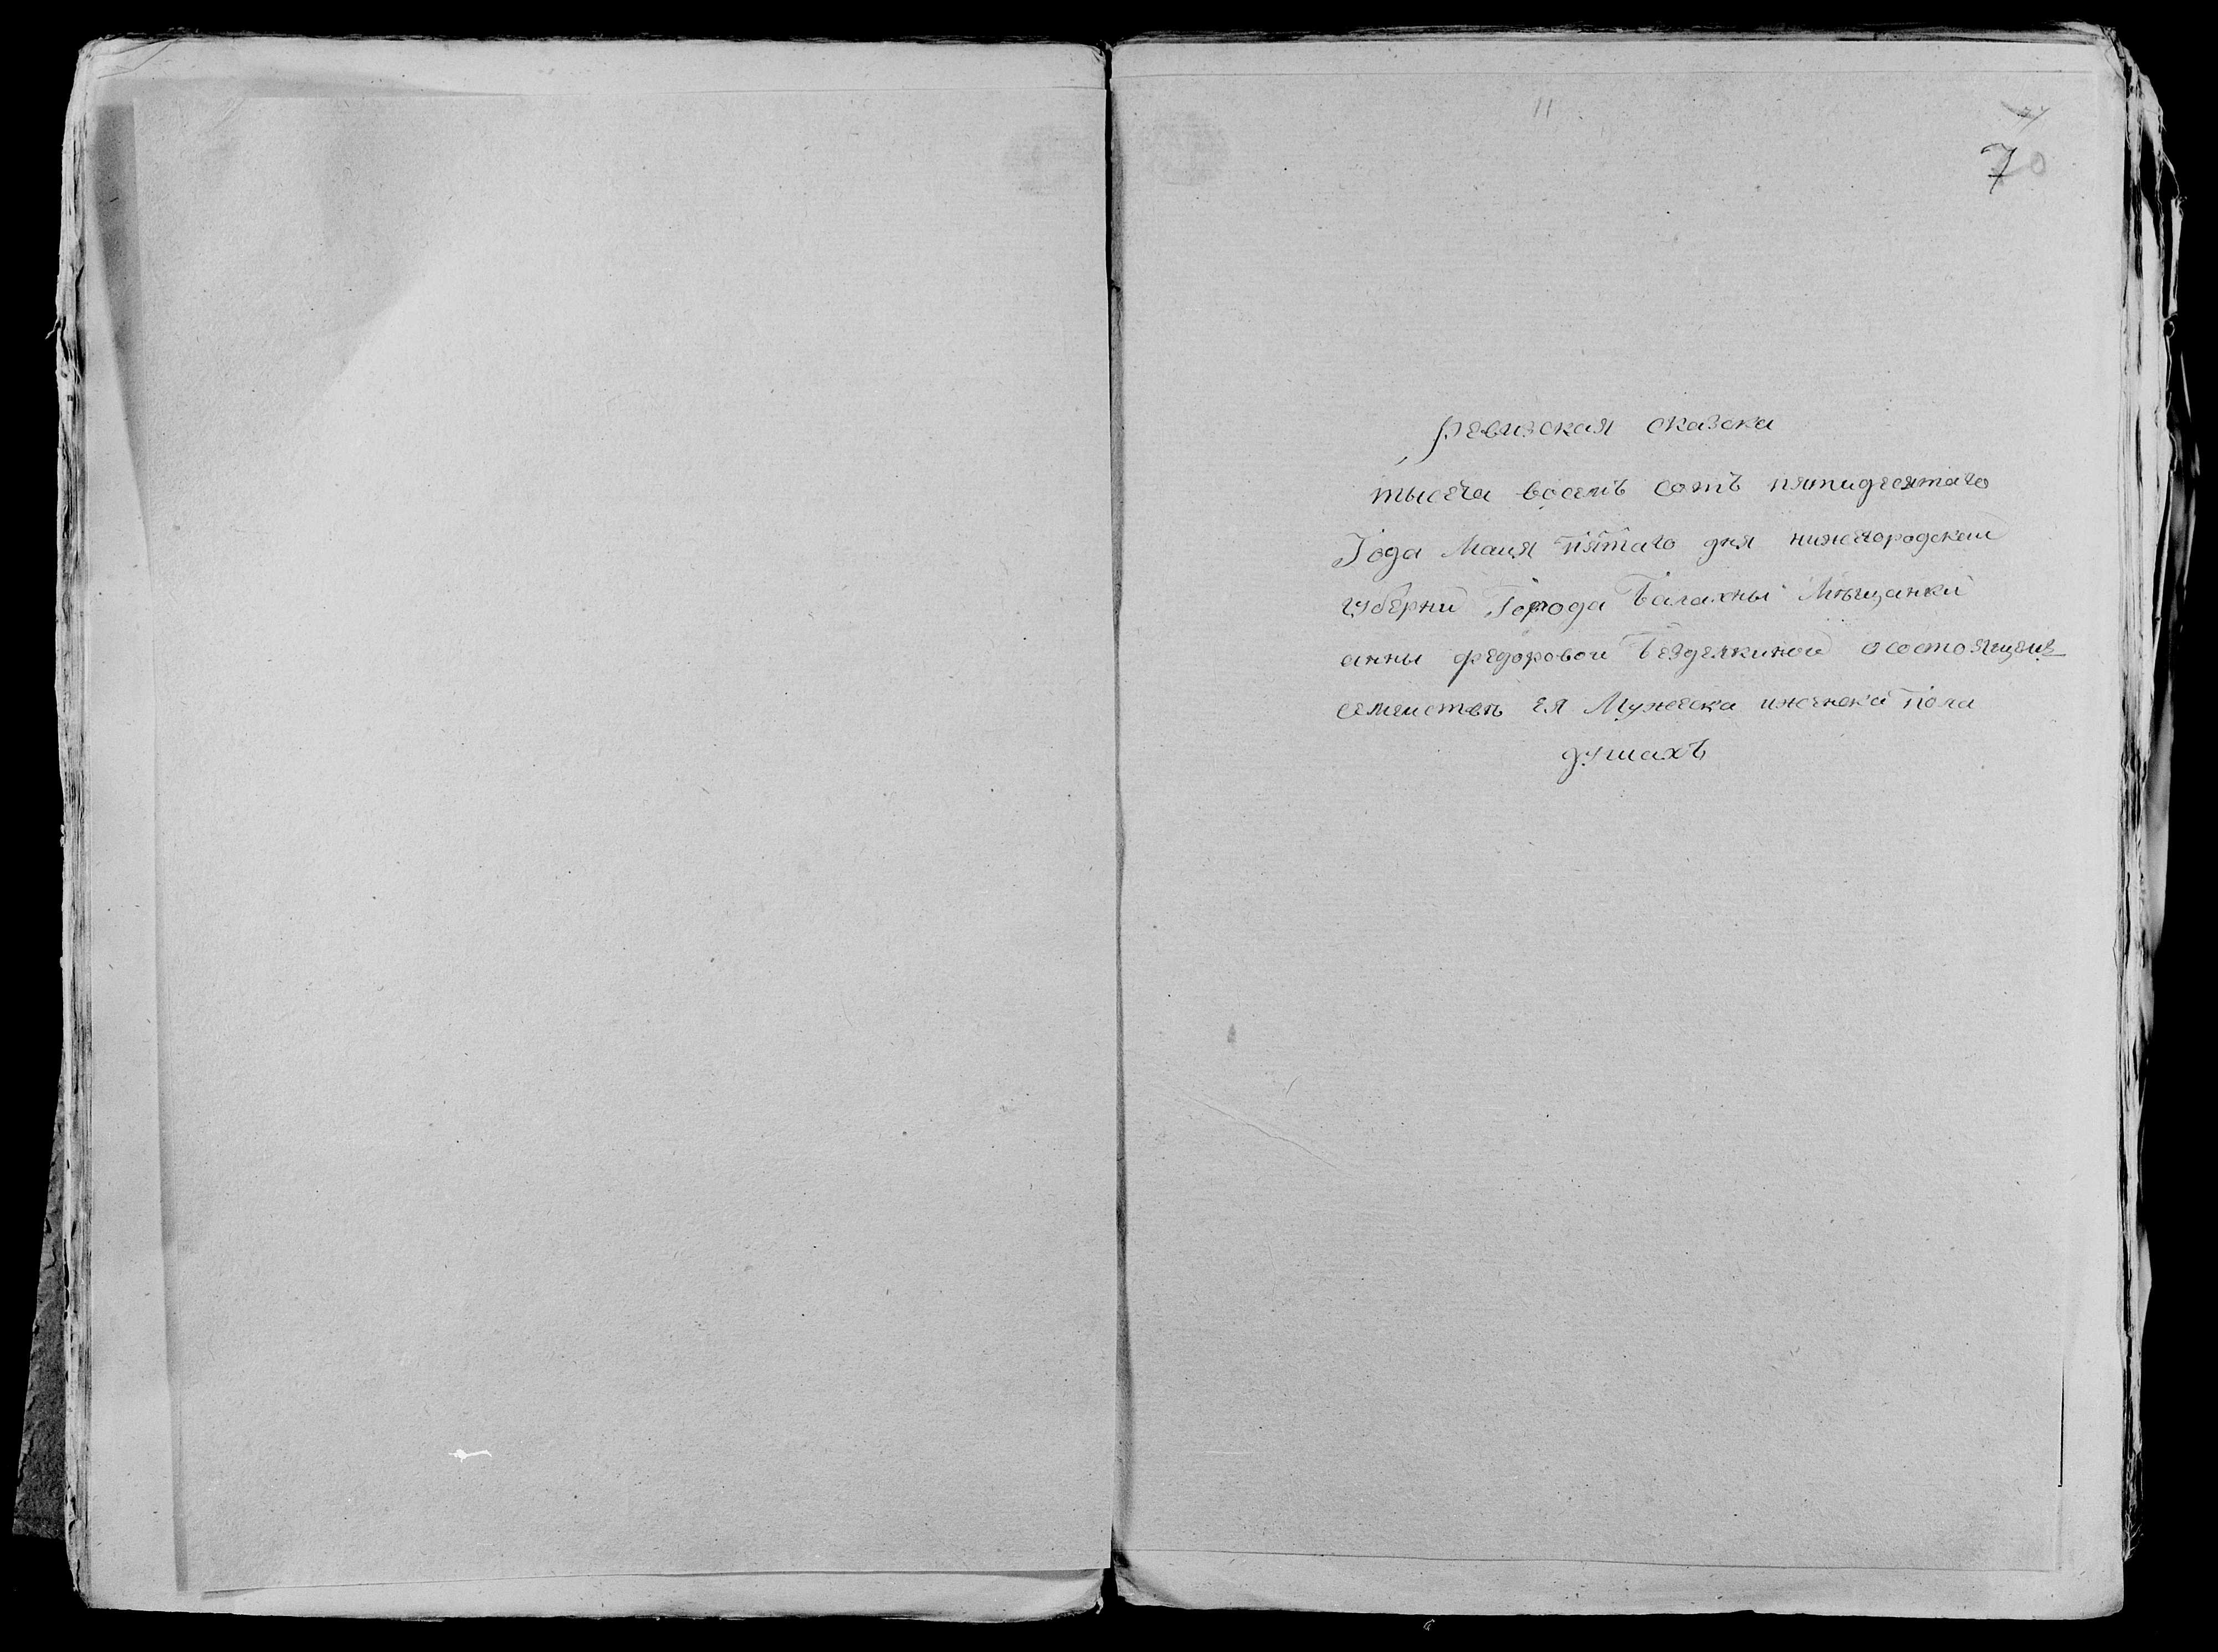 11
7
ревизская сказка
тысеча восемь сотъ пятидесятаго
Года Маия пятаго дня нижегородскои
губерни Города Балахны Мѣщанки
анны федоровои Безделкинои осостоящемъ
семеиствѣ ея Мужеска иженска пола
душахъ